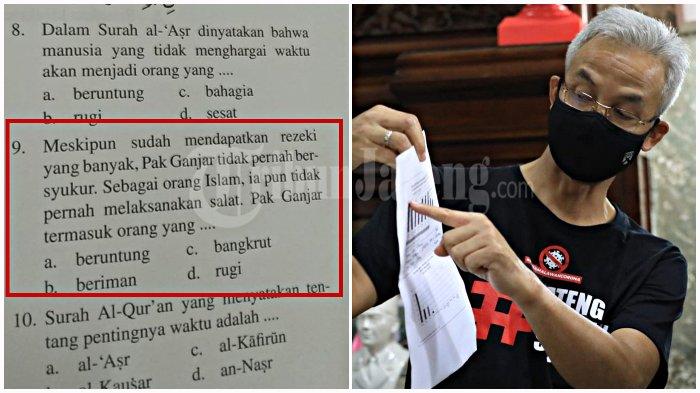 8. Dalam Surah al-‘Aṣr dinyatakan bahwa
manusia yang tidak menghargai waktu
akan menjadi orang yang ....
a. beruntung c. bahagia
b. rugi d. sesat
9. Meskipun sudah mendapatkan rezeki
yang banyak, Pak Ganjar tidak pernah ber-
syukur. Sebagai orang Islam, ia pun tidak
pernah melaksanakan salat. Pak Ganjar
termasuk orang yang ....
a. beruntung c. bangkrut
b. beriman d. rugi
10. Surah Al-Qur’an yang menyatakan ten-
tang pentingnya waktu adalah ....
a. al-‘Aṣr c. al-Kāfirūn
b. al-Kauṡar d. an-Naṣr
TribunJateng.com